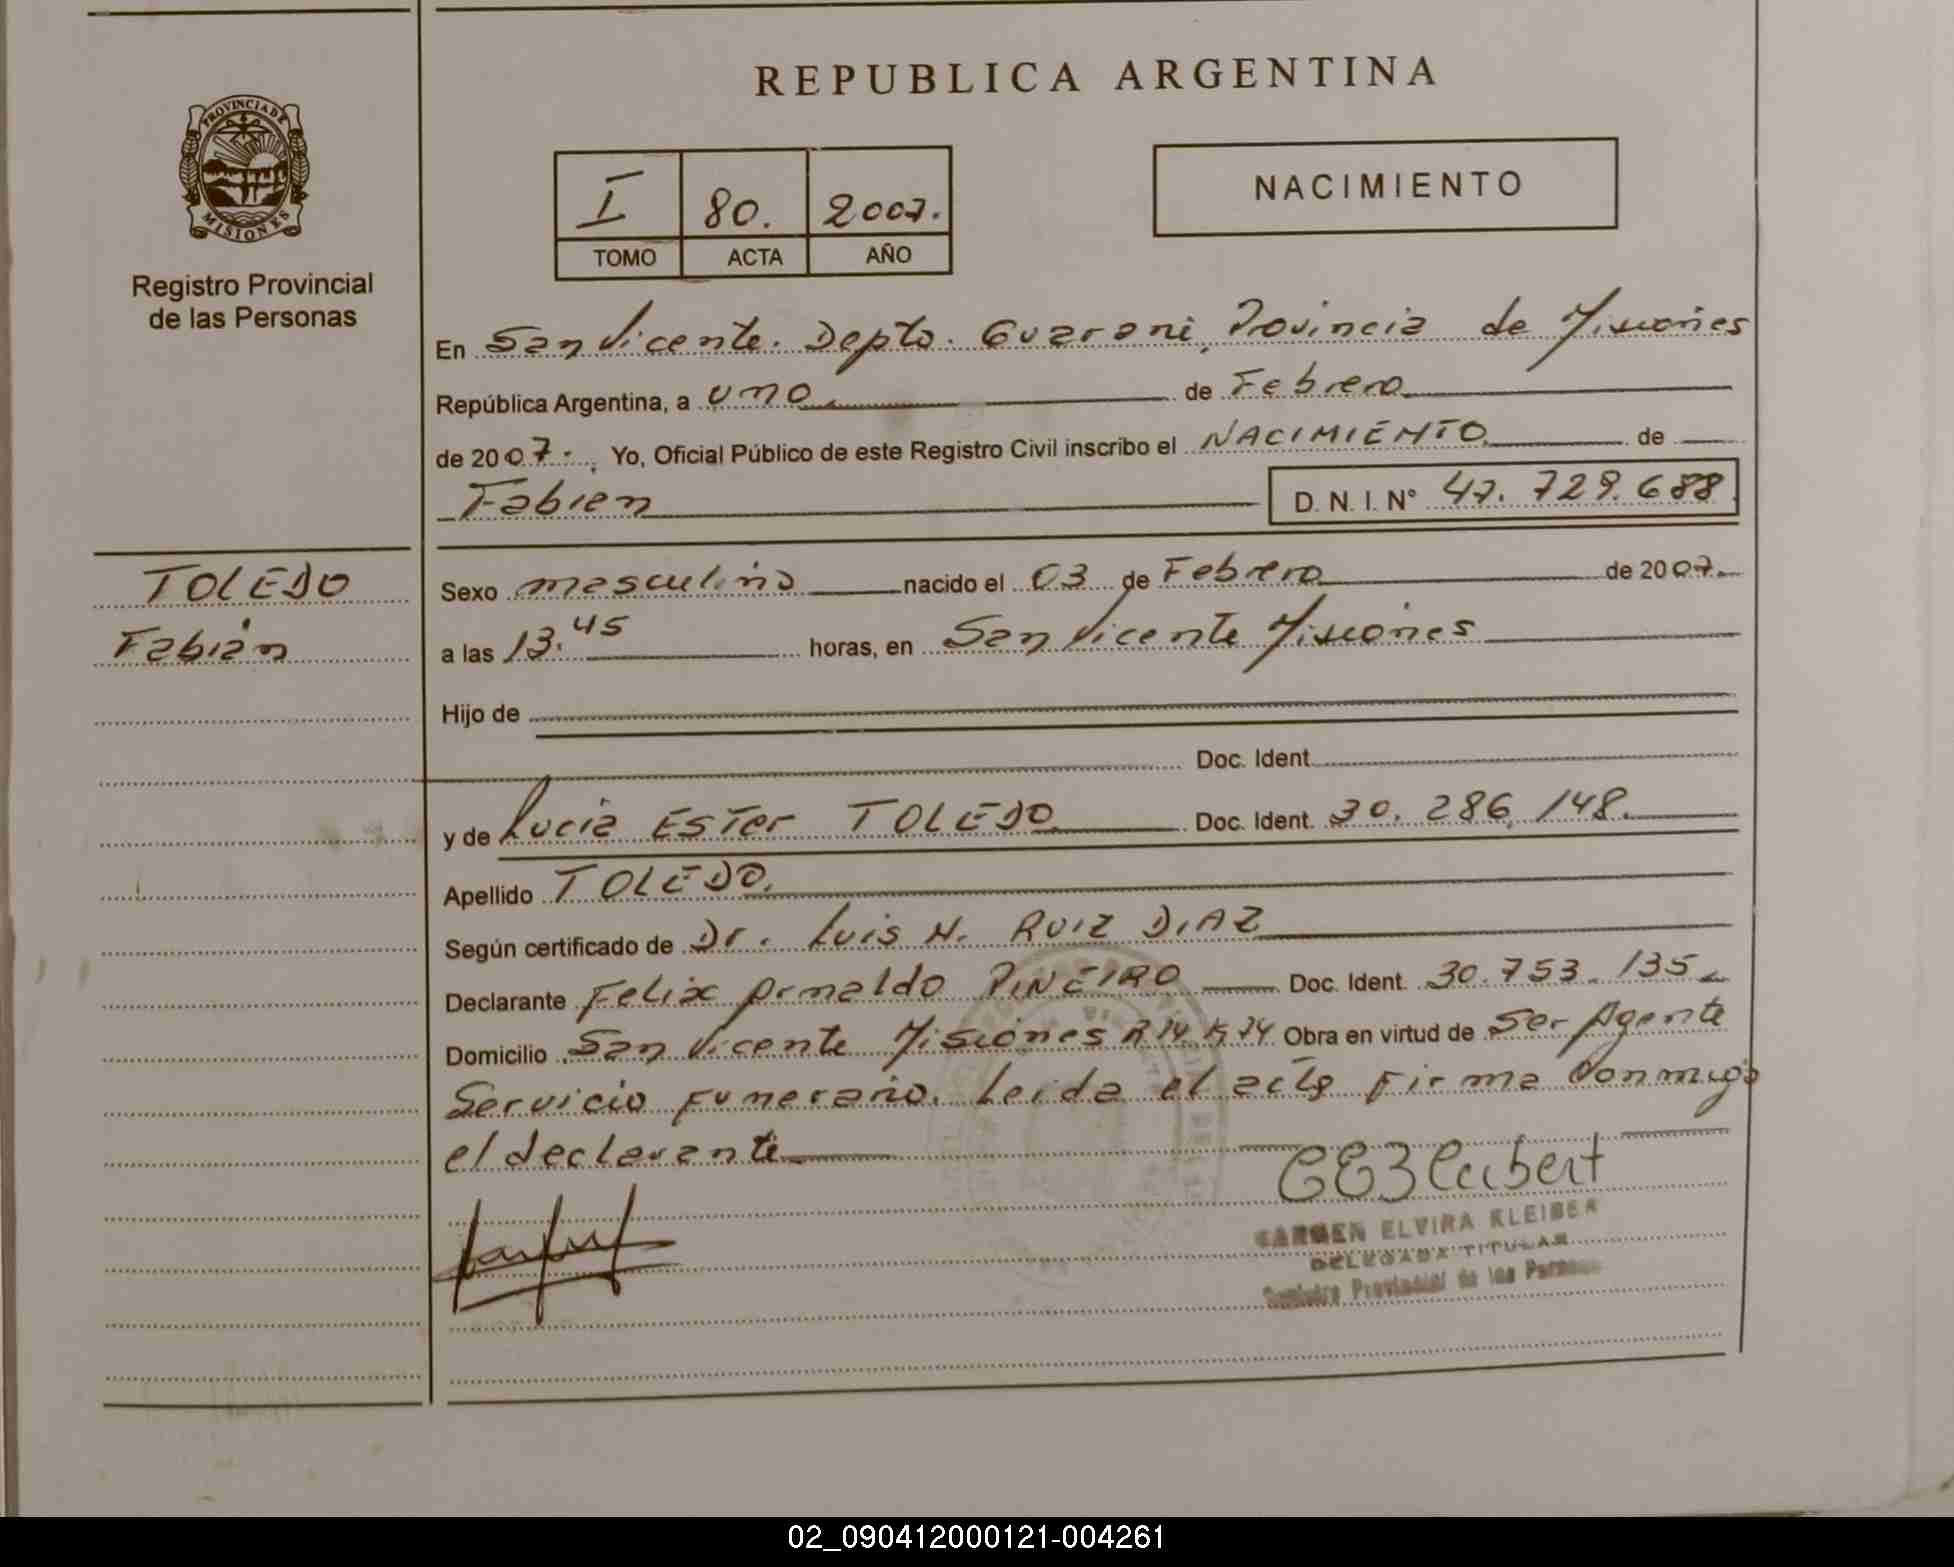 REPUBLICA ARGENTINA
PROVINCIA DE MISIONES
Registro Provincial
de las Personas
I 80. 2007.
TOMO ACTA AÑO
NACIMIENTO
En San Vicente. Depto. Guarani, Provincia de Misiones
República Argentina, a uno. de Febrero
de 2007. Yo, Oficial Público de este Registro Civil inscribo el NACIMIENTO de
Fabian D. N. I. N° 47.729.688
TOLEDO
Fabián
Sexo masculino nacido el 03 de Febrero de 2007.
a las 13.45 horas, en San Vicente Misiones
Hijo de
Doc. Ident.
y de Lucia Ester TOLEDO Doc. Ident. 30.286.148.
Apellido TOLEDO.
Según certificado de Dr. Luis N. RUIZ DIAZ
Declarante Felix Arnaldo PINEIRO Doc. Ident. 30.753.135
Domicilio San Vicente Misiones R 14 K 74 Obra en virtud de Ser Agente
Servicio Funerario. Leida el acta firma conmigo
el declarante
CARMEN ELVIRA KLEIBER
DELEGADA TITULAR
Provincial de las Personas
02_090412000121-004261